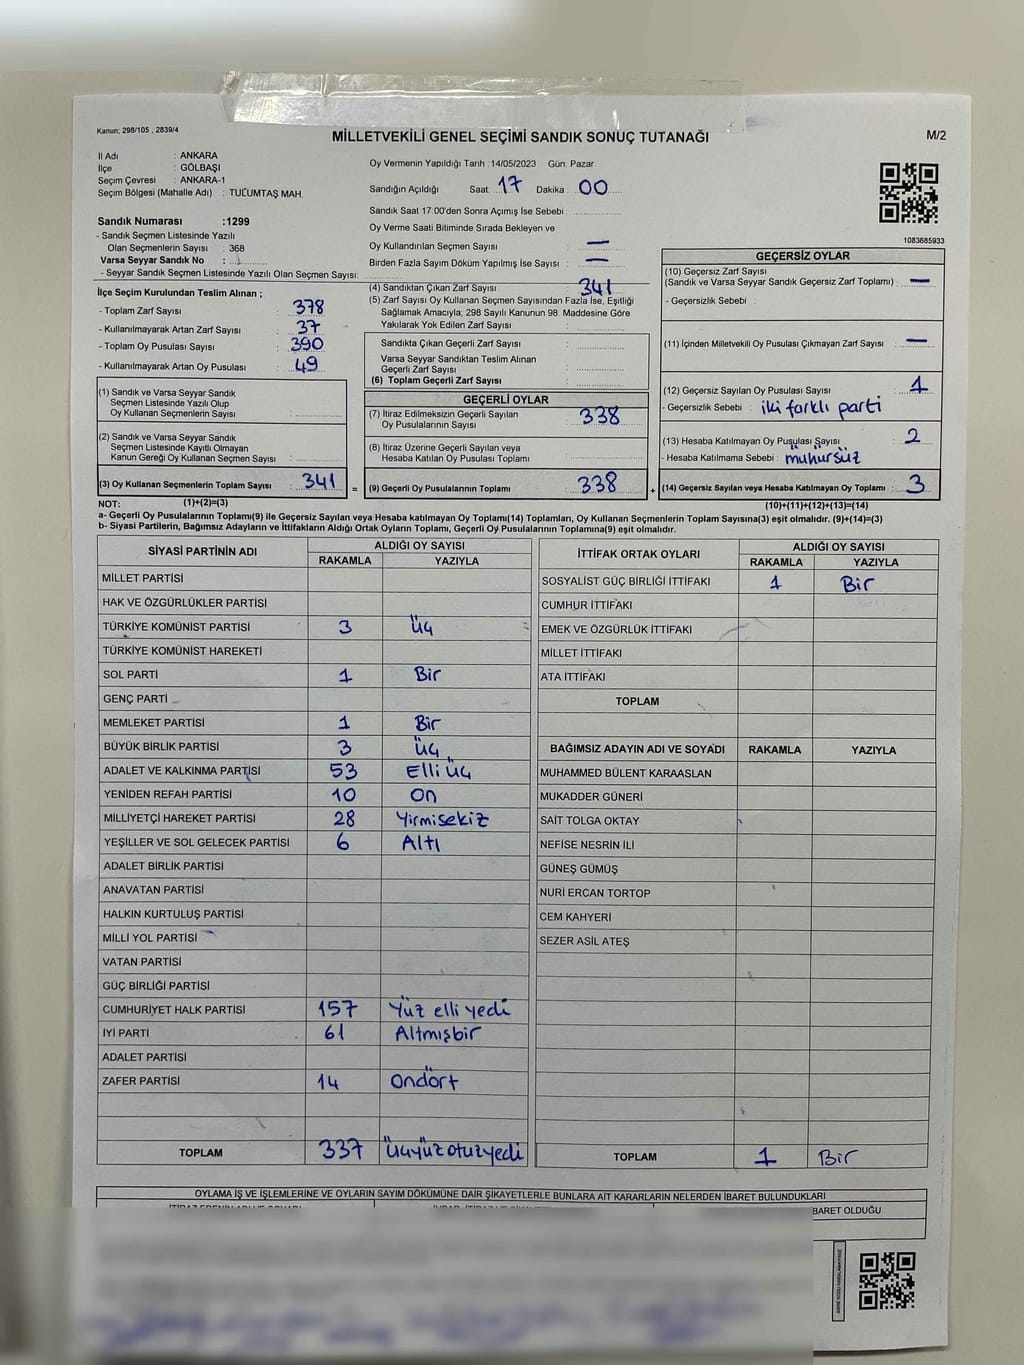 Kanun; 298/105 , 2839/4
MİLLETVEKİLİ GENEL SEÇİMİ SANDIK SONUÇ TUTANAĞI
M/2
İl Adı : ANKARA
İlçe : GÖLBAŞI
Seçim Çevresi : ANKARA-1
Seçim Bölgesi (Mahalle Adı) : TULUMTAŞ MAH.
Oy Vermenin Yapıldığı Tarih :14/05/2023 Gün: Pazar
Sandığın Açıldığı Saat 17 Dakika : 00
Sandık Saat 17:00'den Sonra Açımış İse Sebebi :
Oy Verme Saati Bitiminde Sırada Bekleyen ve
Oy Kullandırılan Seçmen Sayısı : —
Birden Fazla Sayım Döküm Yapılmış İse Sayısı : —
1083685933
Sandık Numarası :1299
- Sandık Seçmen Listesinde Yazılı
Olan Seçmenlerin Sayısı : 368
Varsa Seyyar Sandık No :
- Seyyar Sandık Seçmen Listesinde Yazılı Olan Seçmen Sayısı:
İlçe Seçim Kurulundan Teslim Alınan ;
- Toplam Zarf Sayısı : 378
- Kullanılmayarak Artan Zarf Sayısı : 37
- Toplam Oy Pusulası Sayısı : 390
- Kullanılmayarak Artan Oy Pusulası : 49
(1) Sandık ve Varsa Seyyar Sandık
Seçmen Listesinde Yazılı Olup
Oy Kullanan Seçmenlerin Sayısı :
(2) Sandık ve Varsa Seyyar Sandık
Seçmen Listesinde Kayıtlı Olmayan
Kanun Gereği Oy Kullanan Seçmen Sayısı :
(3) Oy Kullanan Seçmenlerin Toplam Sayısı : 341 =
(4) Sandıktan Çıkan Zarf Sayısı : 341
(5) Zarf Sayısı Oy Kullanan Seçmen Sayısından Fazla İse, Eşitliği
Sağlamak Amacıyla; 298 Sayılı Kanunun 98. Maddesine Göre
Yakılarak Yok Edilen Zarf Sayısı :
Sandıkta Çıkan Geçerli Zarf Sayısı :
Varsa Seyyar Sandıktan Teslim Alınan
Geçerli Zarf Sayısı :
(6) Toplam Geçerli Zarf Sayısı :
GEÇERLİ OYLAR
(7) İtiraz Edilmeksizin Geçerli Sayılan
Oy Pusulalarının Sayısı : 338
(8) İtiraz Üzerine Geçerli Sayılan veya
Hesaba Katılan Oy Pusulası Toplamı :
(9) Geçerli Oy Pusulalarının Toplamı : 338 +
GEÇERSİZ OYLAR
(10) Geçersiz Zarf Sayısı
(Sandık ve Varsa Seyyar Sandık Geçersiz Zarf Toplamı) : —
- Geçersizlik Sebebi :
(11) İçinden Milletvekili Oy Pusulası Çıkmayan Zarf Sayısı : —
(12) Geçersiz Sayılan Oy Pusulası Sayısı : 1
- Geçersizlik Sebebi : iki farklı parti
(13) Hesaba Katılmayan Oy Pusulası Sayısı : 2
- Hesaba Katılmama Sebebi : mühürsüz
(14) Geçersiz Sayılan veya Hesaba Katılmayan Oy Toplamı : 3
NOT: (1)+(2)=(3)
(10)+(11)+(12)+(13)=(14)
a- Geçerli Oy Pusulalarının Toplamı(9) ile Geçersiz Sayılan veya Hesaba Katılmayan Oy Toplamı(14) Toplamları, Oy Kullanan Seçmenlerin Toplam Sayısına(3) eşit olmalıdır. (9)+(14)=(3)
b- Siyasi Partilerin, Bağımsız Adayların ve İttifakların Aldığı Ortak Oyların Toplamı, Geçerli Oy Pusulalarının Toplamına(9) eşit olmalıdır.
SİYASİ PARTİNİN ADI ALDIĞI OY SAYISI
RAKAMLA YAZIYLA
MİLLET PARTİSİ
HAK VE ÖZGÜRLÜKLER PARTİSİ
TÜRKİYE KOMÜNİST PARTİSİ 3 Üç
TÜRKİYE KOMÜNİST HAREKETİ
SOL PARTİ 1 Bir
GENÇ PARTİ
MEMLEKET PARTİSİ 1 Bir
BÜYÜK BİRLİK PARTİSİ 3 Üç
ADALET VE KALKINMA PARTİSİ 53 Elli üç
YENİDEN REFAH PARTİSİ 10 On
MİLLİYETÇİ HAREKET PARTİSİ 28 Yirmisekiz
YEŞİLLER VE SOL GELECEK PARTİSİ 6 Altı
ADALET BİRLİK PARTİSİ
ANAVATAN PARTİSİ
HALKIN KURTULUŞ PARTİSİ
MİLLİ YOL PARTİSİ
VATAN PARTİSİ
GÜÇ BİRLİĞİ PARTİSİ
CUMHURİYET HALK PARTİSİ 157 Yüz elli yedi
İYİ PARTİ 61 Altmışbir
ADALET PARTİSİ
ZAFER PARTİSİ 14 Ondört
TOPLAM 337 Üçyüzotuzyedi
İTTİFAK ORTAK OYLARI ALDIĞI OY SAYISI
RAKAMLA YAZIYLA
SOSYALİST GÜÇ BİRLİĞİ İTTİFAKI 1 Bir
CUMHUR İTTİFAKI
EMEK VE ÖZGÜRLÜK İTTİFAKI
MİLLET İTTİFAKI
ATA İTTİFAKI
TOPLAM
BAĞIMSIZ ADAYIN ADI VE SOYADI RAKAMLA YAZIYLA
MUHAMMED BÜLENT KARAASLAN
MUKADDER GÜNERİ
SAİT TOLGA OKTAY
NEFİSE NESRİN İLİ
GÜNEŞ GÜMÜŞ
NURİ ERCAN TORTOP
CEM KAHYERİ
SEZER ASİL ATEŞ
TOPLAM 1 Bir
OYLAMA İŞ VE İŞLEMLERİNE VE OYLARIN SAYIM DÖKÜMÜNE DAİR ŞİKAYETLERLE BUNLARA AİT KARARLARIN NELERDEN İBARET BULUNDUKLARI
BARET OLDUĞU